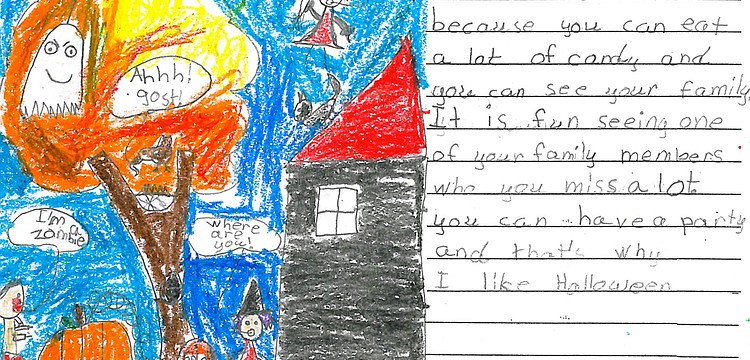 Ahhh!
gost!
I'm a
zombie
where
are
you!
because you can eat
a lot of candy and
you can see your family.
It is fun seeing one
of your family members
who you miss a lot.
you can have a party
and that's why
I like Halloween